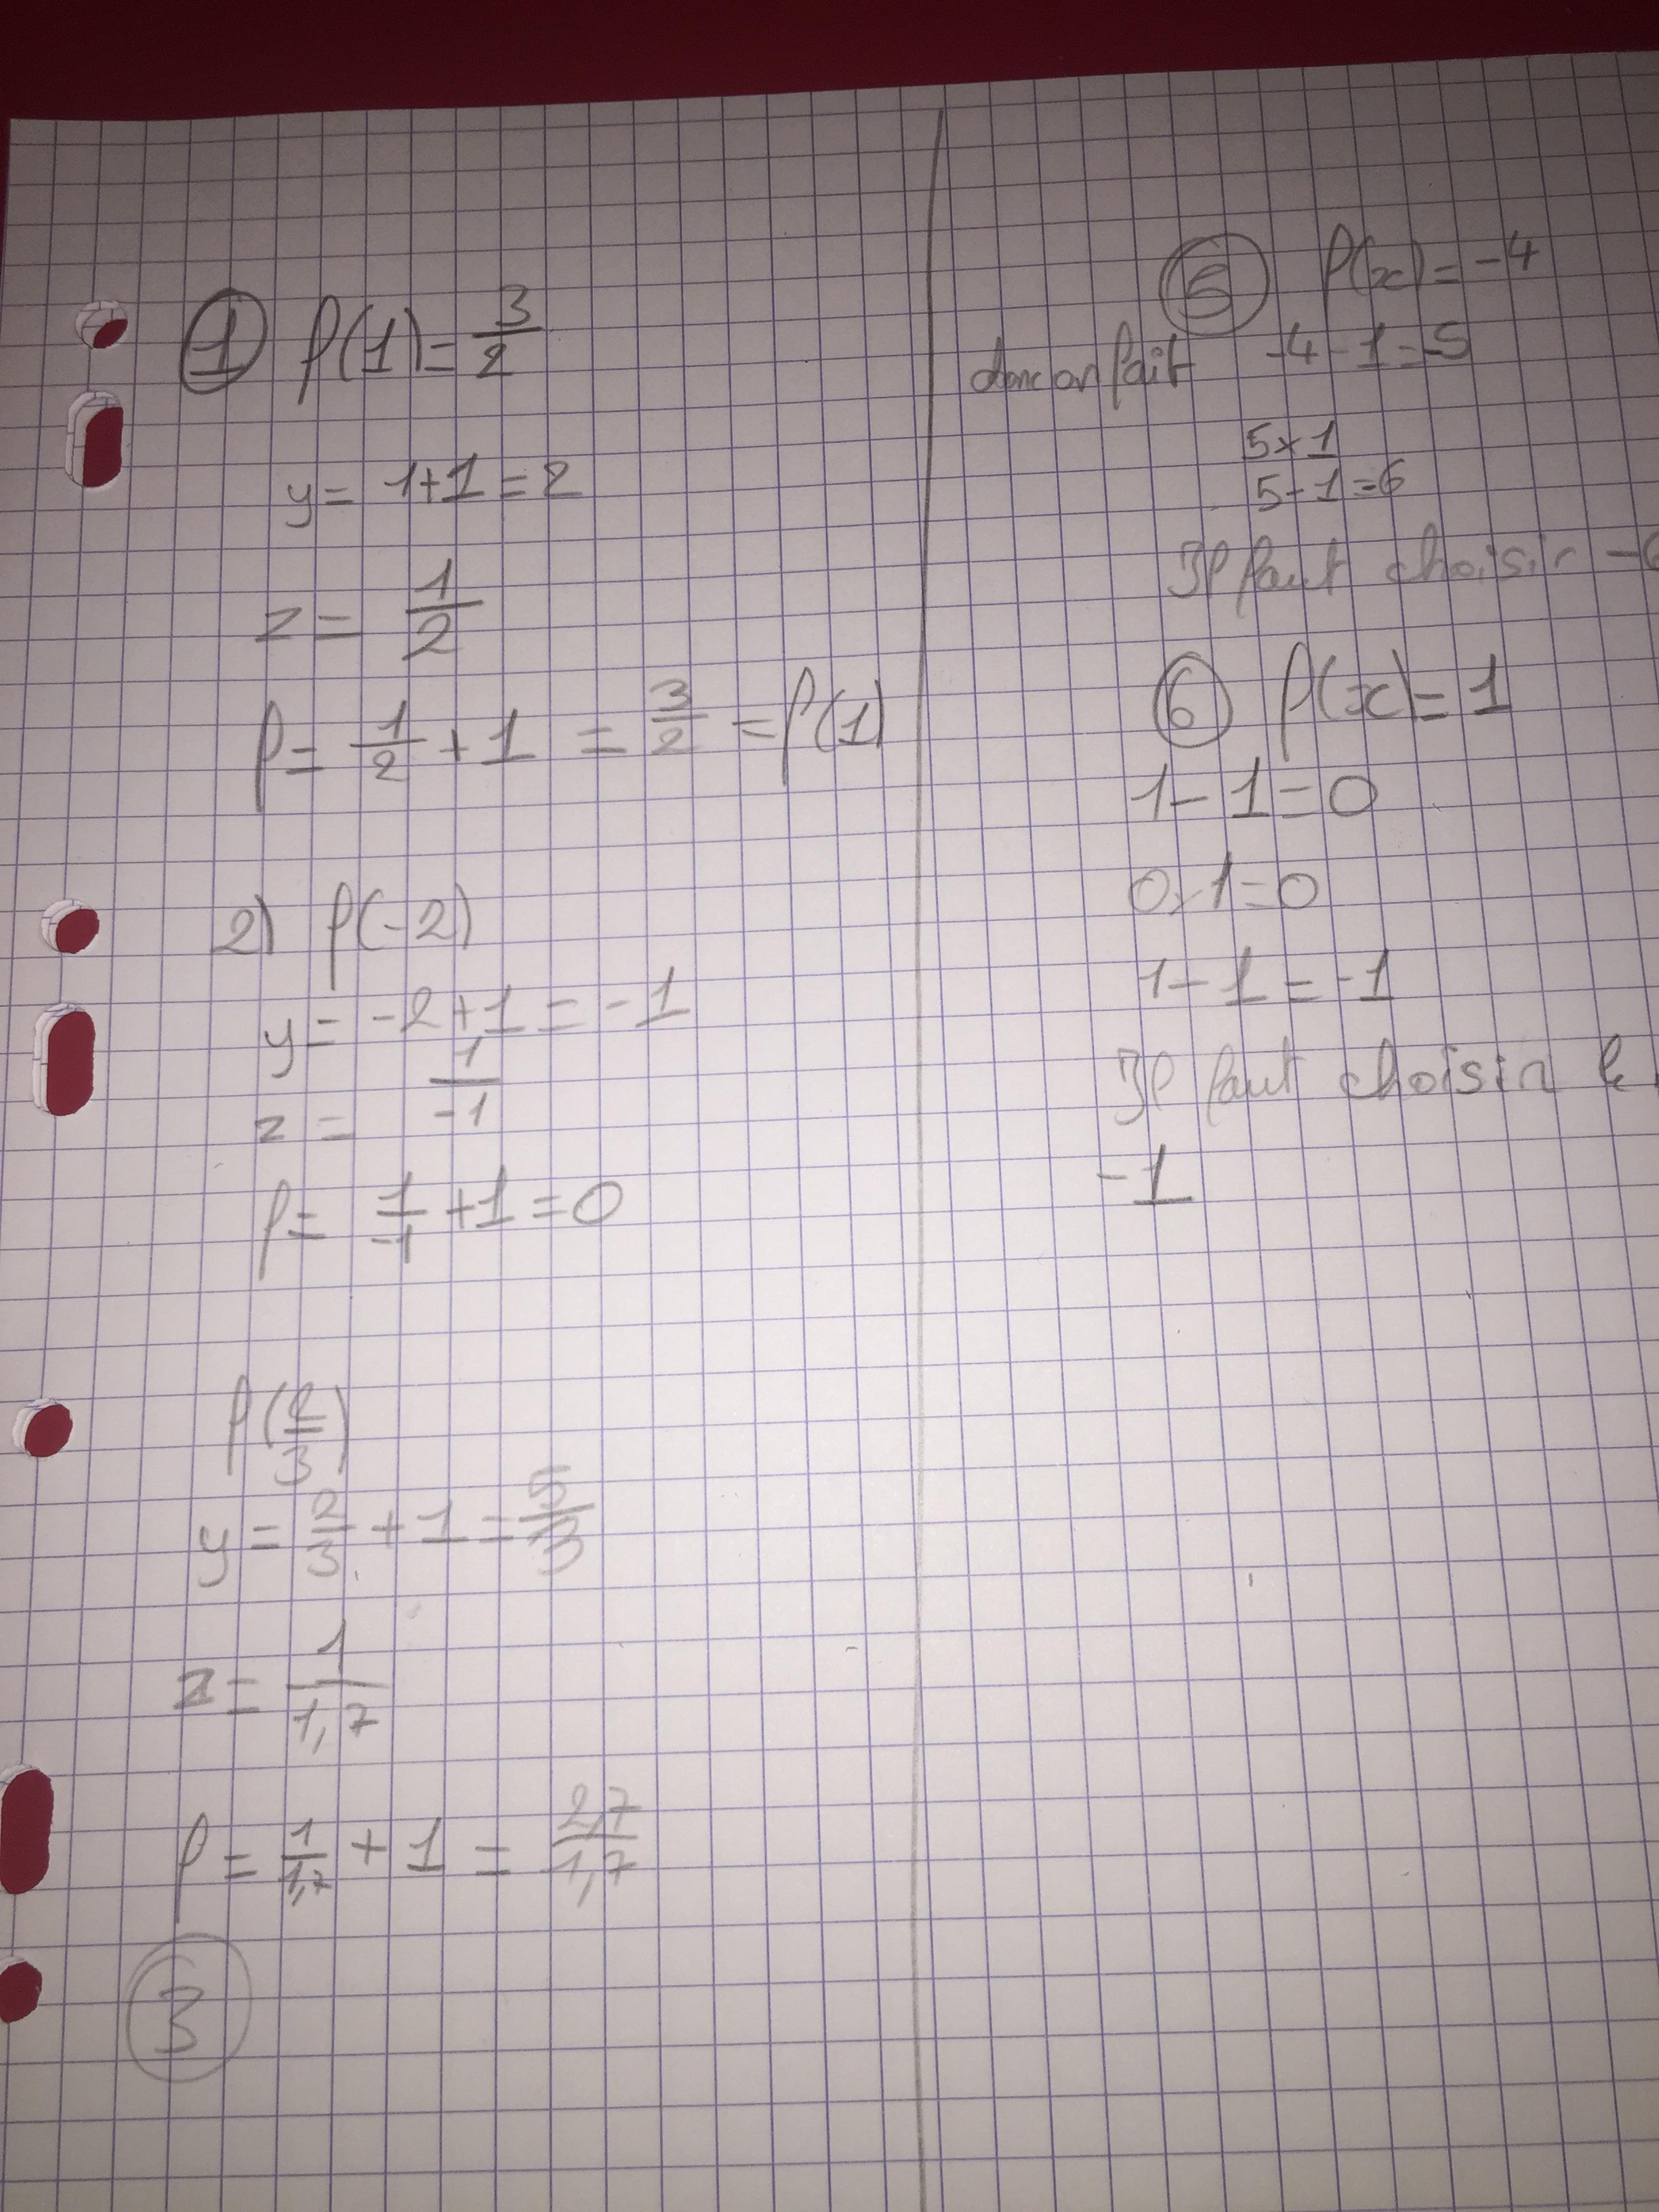 1 f(1) = 3/2
y = 1+1 = 2
z = 1/2
f = 1/2 + 1 = 3/2 = f(1)
2) f(-2)
y = -2+1 = -1
z = 1/-1
f = 1/-1 + 1 = 0
f(2/3)
y = 2/3 + 1 = 5/3
z = 1/1,7
f = 1/1,7 + 1 = 2,7/1,7
3
5 f(x) = -4
donc on fait -4-1=-5
5x1
5-1=6
Il faut choisir -6
6 f(x) = 1
1-1=0
0x1=0
1-1=-1
Il faut choisir le
-1